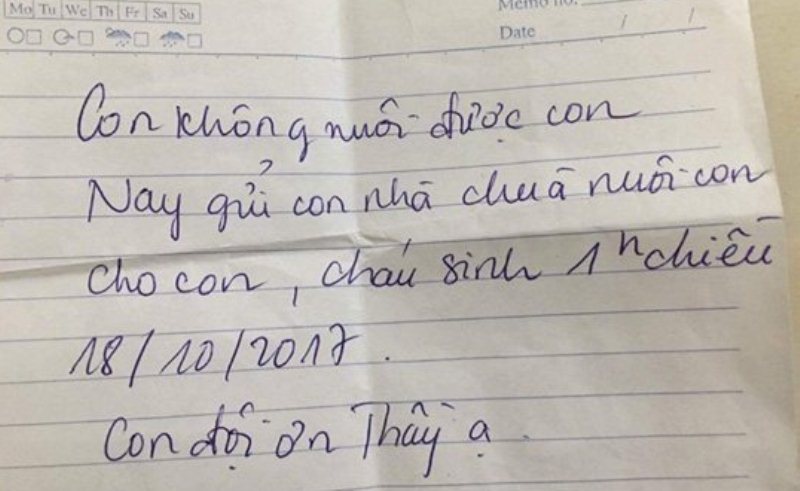 Mo Tu We Th Fr Sa Su
Memo no.
Date / /
Con không nuôi được con
Nay gửi con nhà chùa nuôi con
cho con, cháu sinh 1h chiều
18/10/2017.
Con đội ơn Thầy ạ.